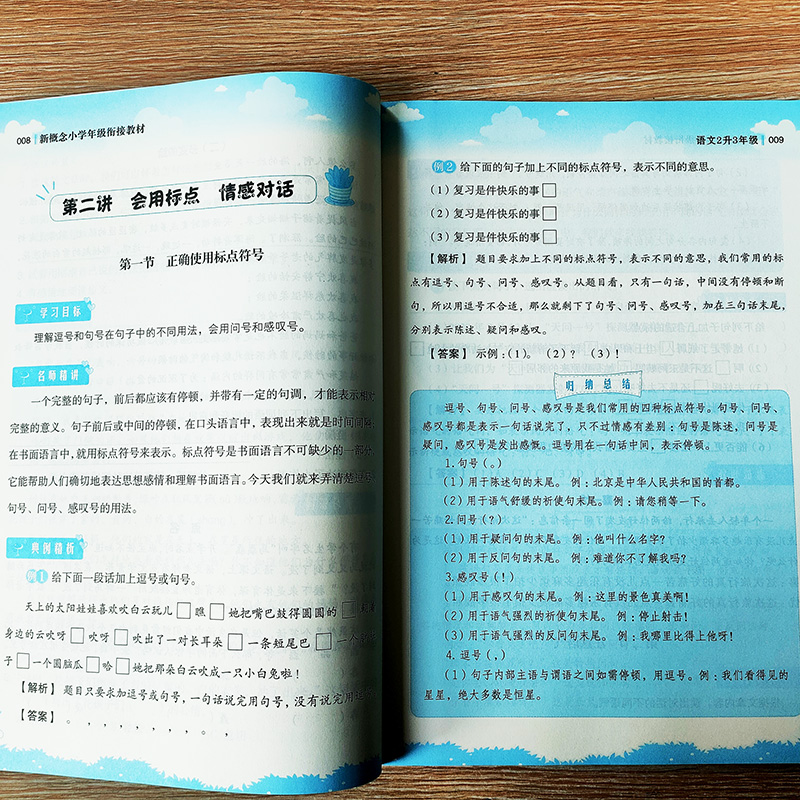 008 新概念小学年级衔接教材
第二讲 会用标点 情感对话
第一节 正确使用标点符号
学习目标
理解逗号和句号在句子中的不同用法,会用问号和感叹号。
名师精讲
一个完整的句子,前后都应该有停顿,并带有一定的句调,才能表示相对
完整的意义。句子前后或中间的停顿,在口头语言中,表现出来就是时间间隔,
在书面语言中,就用标点符号来表示。标点符号是书面语言不可缺少的一部分,
它能帮助人们确切地表达思想感情和理解书面语言。今天我们就来弄清楚逗号、
句号、问号、感叹号的用法。
典例精析
例1 给下面一段话加上逗号或句号。
天上的太阳娃娃喜欢吹白云玩儿□瞧□她把嘴巴鼓得圆圆的□
身边的云吹呀□吹呀□吹出了一对长耳朵□一条短尾巴□一个
子□一个圆脑瓜□哈□她把那朵白云吹成一只小白兔啦!
【解析】 题目只要求加逗号或句号,一句话说完用句号,没有说完用逗
【答案】 。 , , , , , , , 。 ,
语文2升3年级 009
例2 给下面的句子加上不同的标点符号,表示不同的意思。
(1)复习是件快乐的事□
(2)复习是件快乐的事□
(3)复习是件快乐的事□
【解析】 题目要求加上不同的标点符号,表示不同的意思,我们常用的标
点有逗号、句号、问号、感叹号。从题目看,只有一句话,中间没有停顿和断
句,所以用逗号不合适,那么就剩下了句号、问号、感叹号,加在三句话末尾,
分别表示陈述、疑问和感叹。
【答案】 示例:(1)。 (2)? (3)!
归纳总结
逗号、句号、问号、感叹号是我们常用的四种标点符号。句号、问号、
感叹号都是表示一句话说完了,只不过情感有差别:句号是陈述,问号是
疑问,感叹号是发出感慨。逗号用在一句话中间,表示停顿。
1. 句号(。)
(1)用于陈述句的末尾。 例:北京是中华人民共和国的首都。
(2)用于语气舒缓的祈使句末尾。 例:请您稍等一下。
2. 问号(?)
(1)用于疑问句的末尾。 例:他叫什么名字?
(2)用于反问句的末尾。 例:难道你不了解我吗?
3. 感叹号(!)
(1)用于感叹句的末尾。 例:这里的景色真美啊!
(2)用于语气强烈的祈使句末尾。 例:停止射击!
(3)用于语气强烈的反问句末尾。 例:我哪里比得上他呀!
4. 逗号(,)
(1)句子内部主语与谓语之间如需停顿,用逗号。例:我们看得见的
星星,绝大多数是恒星。